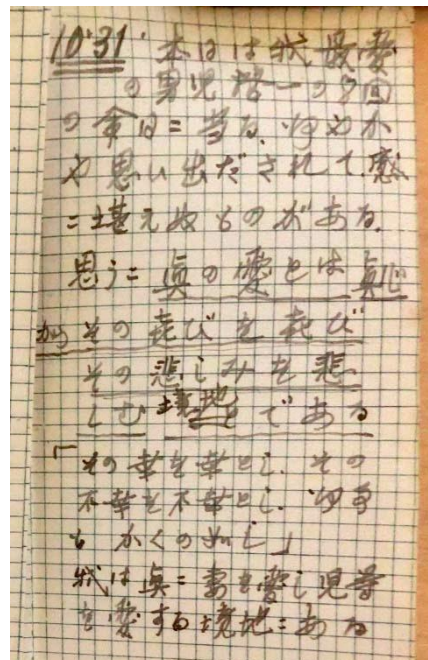 10.31. 本日は我最愛
の男児格一の7回
の命日ニ当る.何やか
や思い出だされて.感
ニ堪えぬものがある.
思うニ真の愛とは真心
から その喜びを喜び
その悲しみを悲
しむ境地とである
「その幸を幸とし. その
不幸を不幸とし. 何事
も かくの如し」
我は真ニ妻を愛し児等
を愛する境地ニある